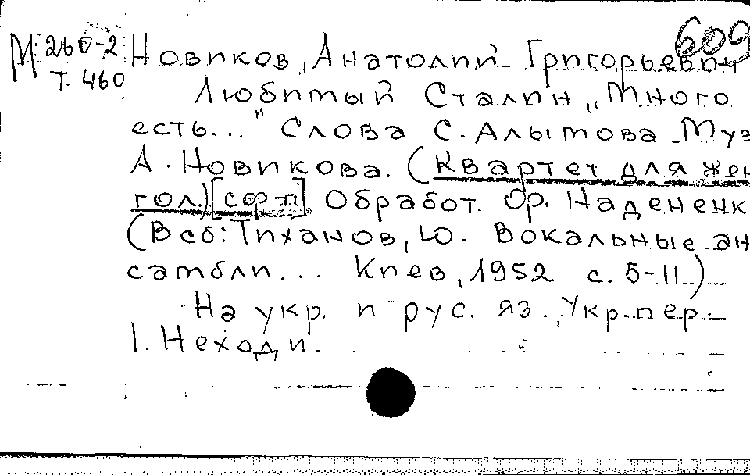 609
М 260-2 Новиков, Анатолий Григорьевич
Т. 460 Любимый Сталин „Много
есть..." Слова С. Алымова Муз
А. Новикова. (Квартет для жен
гол.) [с фп] Обработ. Ф. Надененк
(В сб: Тиханов, Ю. Вокальные ан
самбли... Киев, 1952 с. 5-11)
На укр. и рус. яз. Укр. пер.
1. Неходи.